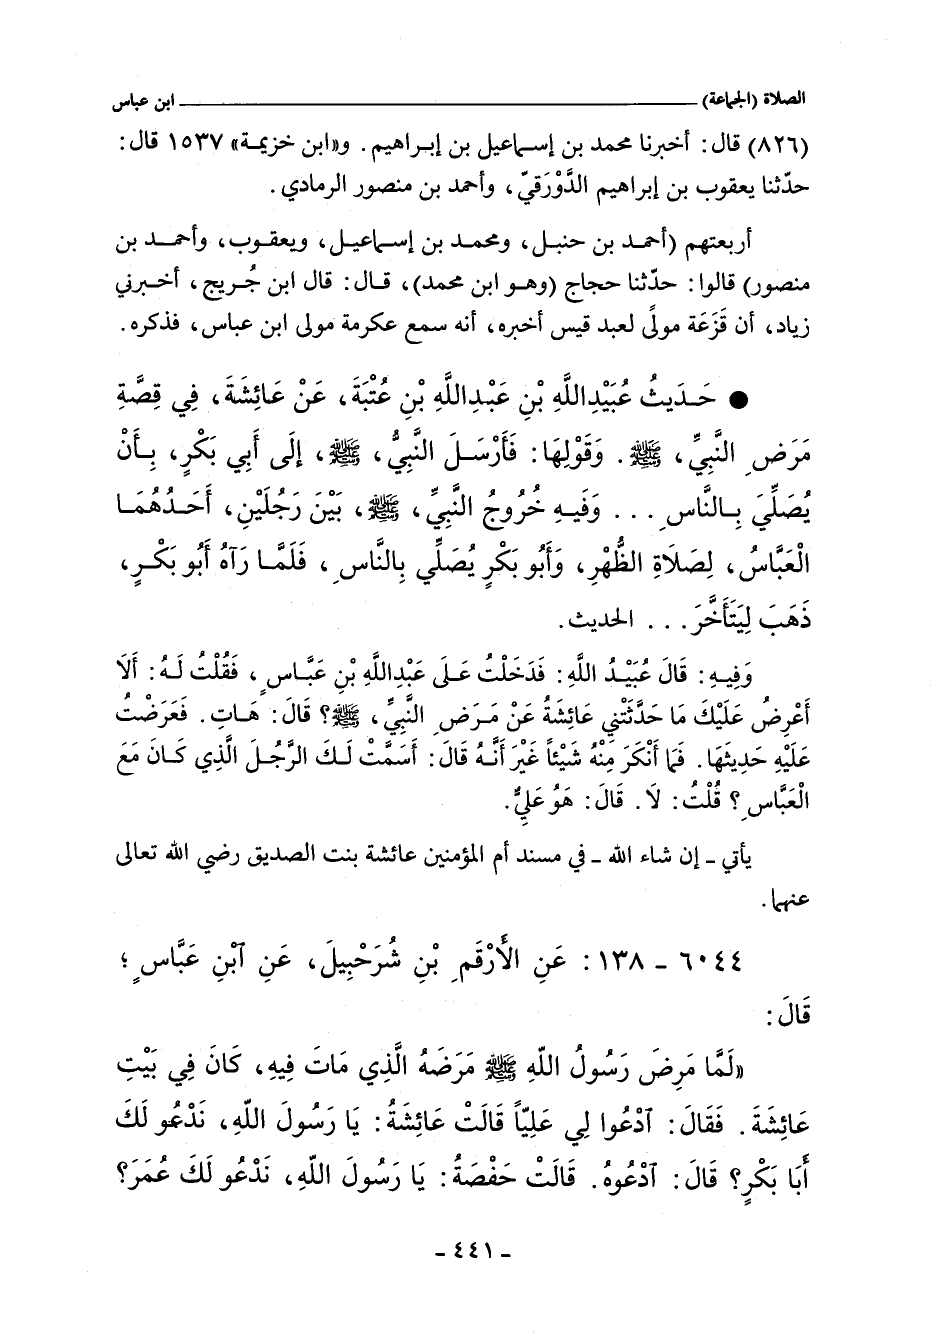 الصلاة (الجماعة) ابن عباس
(٨٢٦) قال: أخبرنا محمد بن إسماعيل بن إبراهيم. و«ابن خزيمة» ١٥٣٧ قال:
حدّثنا يعقوب بن إبراهيم الدَّوْرَقيّ، وأحمد بن منصور الرمادي.
أربعتهم (أحمد بن حنبل، ومحمد بن إسماعيل، ويعقوب، وأحمد بن
منصور) قالوا: حدّثنا حجاج (وهو ابن محمد)، قال: قال ابن جُريج، أخبرني
زياد، أن قَزَعَة مولًى لعبد قيس أخبره، أنه سمع عكرمة مولى ابن عباس، فذكره.
● حَدِيثُ عُبَيْدِاللَّهِ بْنِ عَبْدِاللَّهِ بْنِ عُتْبَةَ، عَنْ عَائِشَةَ، فِي قِصَّةِ
مَرَضِ النَّبِيِّ، ﷺ. وَقَوْلِهَا: فَأَرْسَلَ النَّبِيُّ، ﷺ، إِلَى أَبِي بَكْرٍ، بِأَنْ
يُصَلِّيَ بِالنَّاسِ... وَفِيهِ خُرُوجُ النَّبِيِّ، ﷺ، بَيْنَ رَجُلَيْنِ، أَحَدُهُمَا
الْعَبَّاسُ، لِصَلَاةِ الظُّهْرِ، وَأَبُو بَكْرٍ يُصَلِّي بِالنَّاسِ، فَلَمَّا رَآهُ أَبُو بَكْرٍ،
ذَهَبَ لِيَتَأَخَّرَ... الحديث.
وَفِيهِ: قَالَ عُبَيْدُ اللَّهِ: فَدَخَلْتُ عَلَى عَبْدِاللَّهِ بْنِ عَبَّاسٍ، فَقُلْتُ لَهُ: أَلَا
أَعْرِضُ عَلَيْكَ مَا حَدَّثَتْنِي عَائِشَةُ عَنْ مَرَضِ النَّبِيِّ، ﷺ؟ قَالَ: هَاتِ. فَعَرَضْتُ
عَلَيْهِ حَدِيثَهَا. فَمَا أَنْكَرَ مِنْهُ شَيْئاً غَيْرَ أَنَّهُ قَالَ: أَسَمَّتْ لَكَ الرَّجُلَ الَّذِي كَانَ مَعَ
الْعَبَّاسِ؟ قُلْتُ: لَا. قَالَ: هُوَ عَلِيٌّ.
يأتي ـ إن شاء الله ـ في مسند أم المؤمنين عائشة بنت الصديق رضي الله تعالى
عنهما.
٦٠٤٤ ـ ١٣٨: عَنِ الأَرْقَمِ بْنِ شُرَحْبِيلَ، عَنِ ٱبْنِ عَبَّاسٍ؛
قَالَ:
«لَمَّا مَرِضَ رَسُولُ اللَّهِ ﷺ مَرَضَهُ الَّذِي مَاتَ فِيهِ، كَانَ فِي بَيْتِ
عَائِشَةَ. فَقَالَ: ٱدْعُوا لِي عَلِيّاً قَالَتْ عَائِشَةُ: يَا رَسُولَ اللَّهِ، نَدْعُو لَكَ
أَبَا بَكْرٍ؟ قَالَ: ٱدْعُوهُ. قَالَتْ حَفْصَةُ: يَا رَسُولَ اللَّهِ، نَدْعُو لَكَ عُمَرَ؟
ـ ٤٤١ ـ